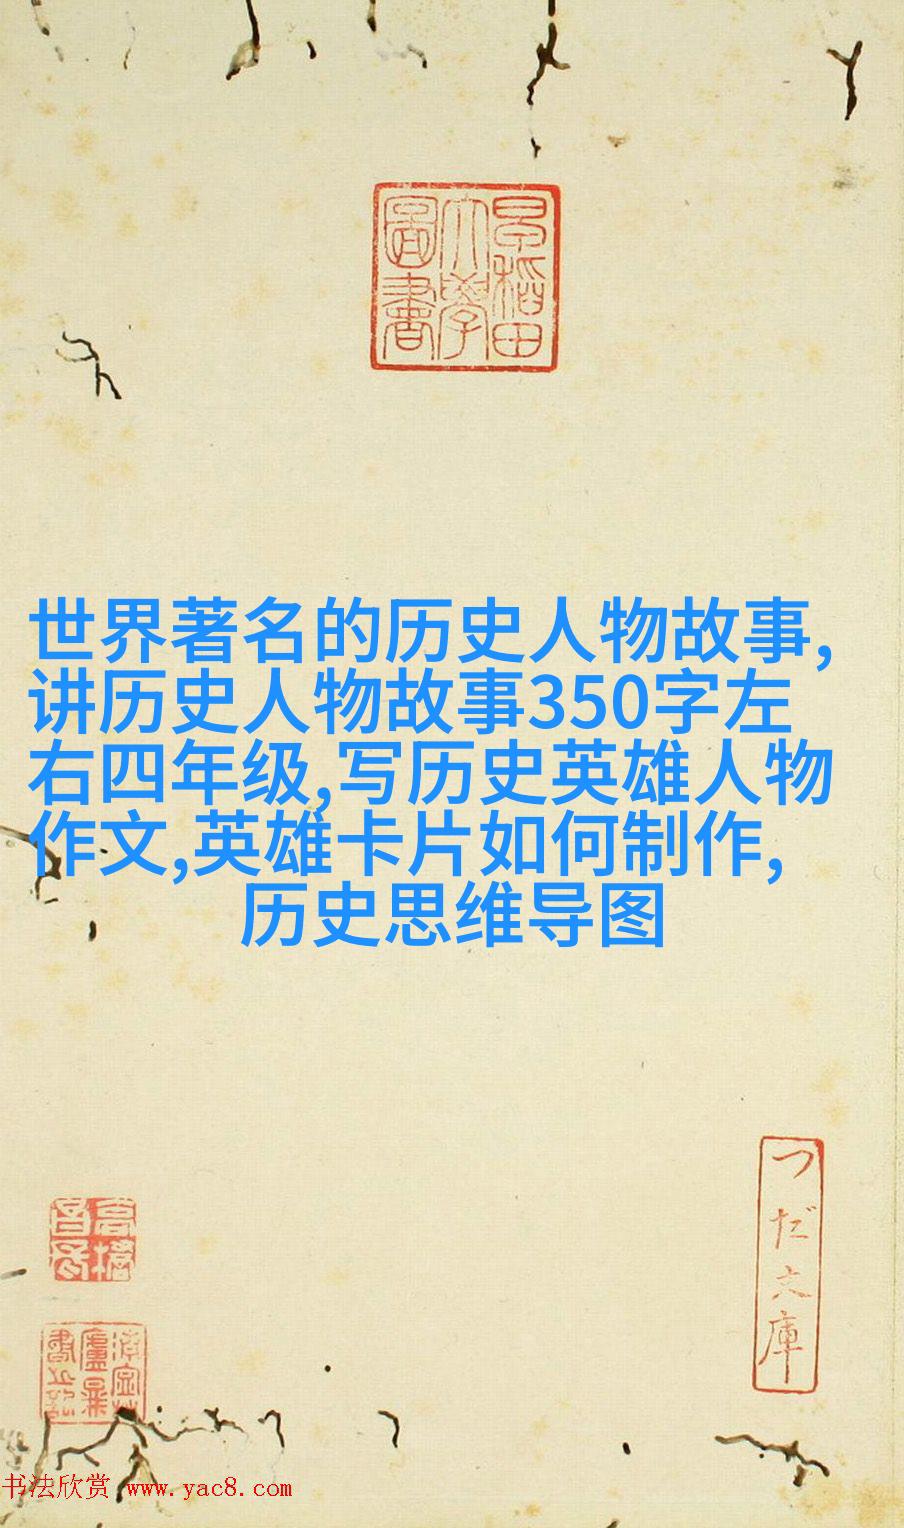 早稲田
大學
圖書
世界著名的历史人物故事,
讲历史人物故事350字左
右四年级,写历史英雄人物
作文,英雄卡片如何制作,
历史思维导图
つだ文庫
书法欣赏 www.yac8.com